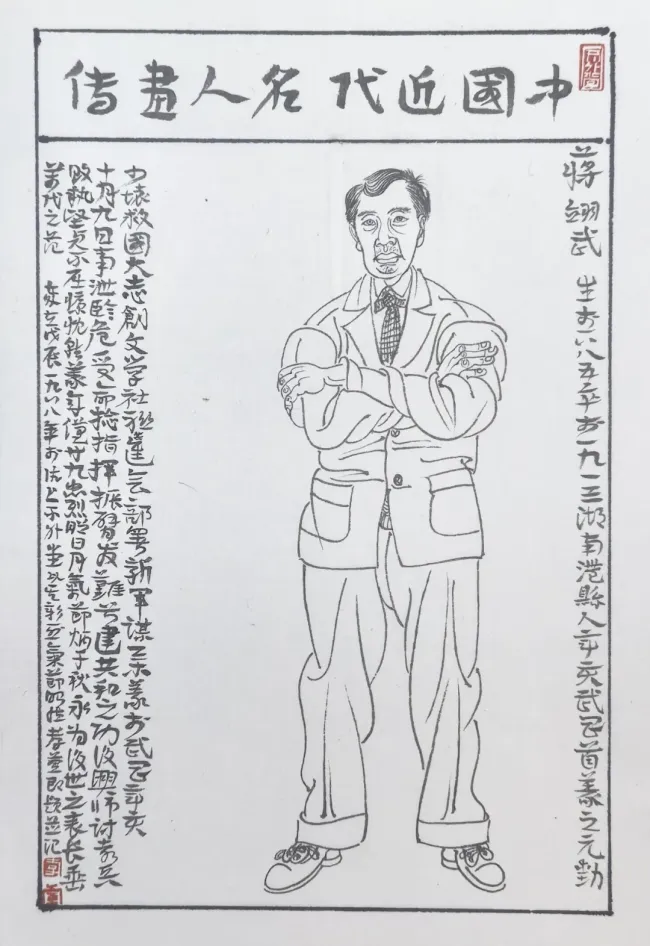 中國近代名人畫傳
蔣翊武 生於一八八五卒於一九一三湖南澧縣人辛亥武昌首義之元勳
少懷救國大志創文学社聯進会部署新軍謀義於武昌辛亥
十月九日事泄臨危受命總指揮振臂发難首建共和之功後興师討袁兵
敗執堅貞不屈慷慨就義年僅廿九忠烈昭日月氣節炳千秋永为後世之表长垂
萬代之范 歲在戊辰一九八八年於